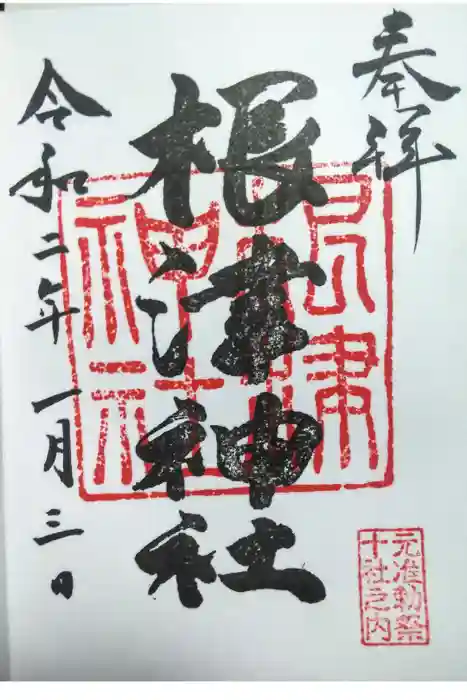 奉拝
根津神社
根津神社
令和二年一月三日
元准勅祭
十社之内